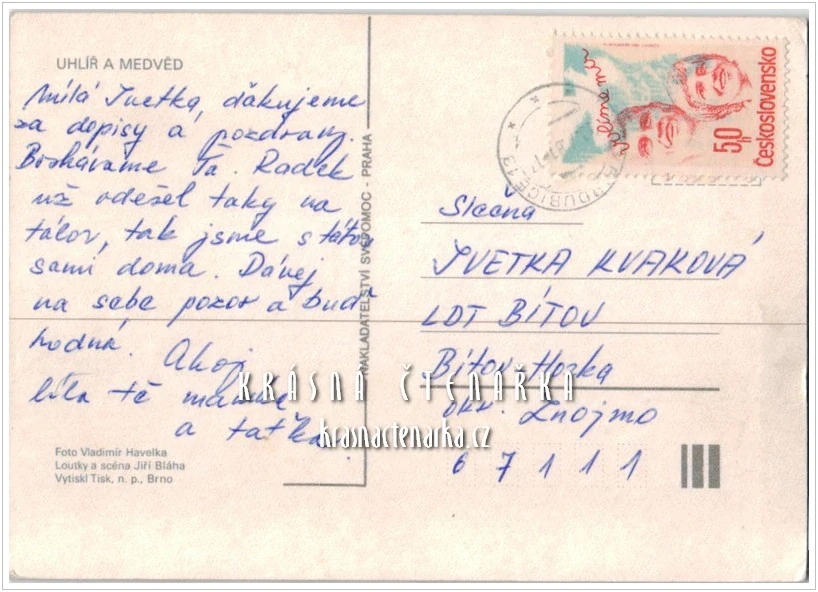 UHLÍŘ A MEDVĚD
Milá Ivetka, ďakujeme
za dopisy a pozdravy.
Bozkáváme Ťa. Radek
už odešel taky na
tábor, tak jsme s tátou
sami doma. Dávej
na sebe pozor a buď
hodná. Ahoj
líbá tě mamka
a taťka.
Foto Vladimír Havelka
Loutky a scéna Jiří Bláha
Vytiskl Tisk, n. p., Brno
NAKLADATELSTVÍ SVÉPOMOC - PRAHA
volíme mír
50 h
Československo
PARDUBICE 13
Slečna
IVETKA KVAKOVÁ
LDT BÍTOV
Bítov-Horka
okr. Znojmo
67111
KRÁSNÁ ČTENÁŘKA
krasnactenarka.cz